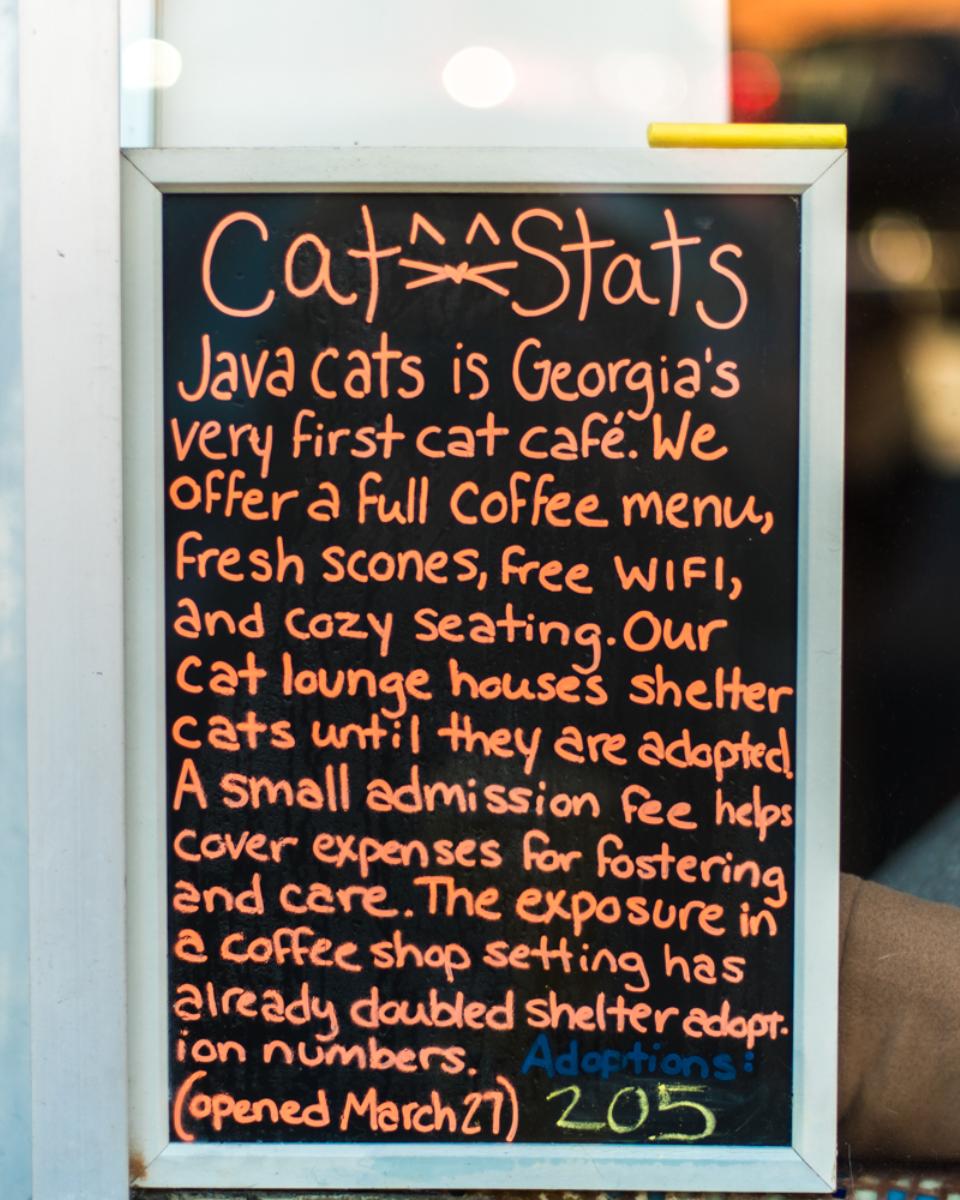 Cat Stats
Java cats is Georgia's
very first cat café. We
offer a full coffee menu,
fresh scones, free WIFI,
and cozy seating. Our
cat lounge houses shelter
cats until they are adopted.
A small admission fee helps
cover expenses for fostering
and care. The exposure in
a coffee shop setting has
already doubled shelter adopt-
ion numbers. Adoptions:
(opened March 27) 205